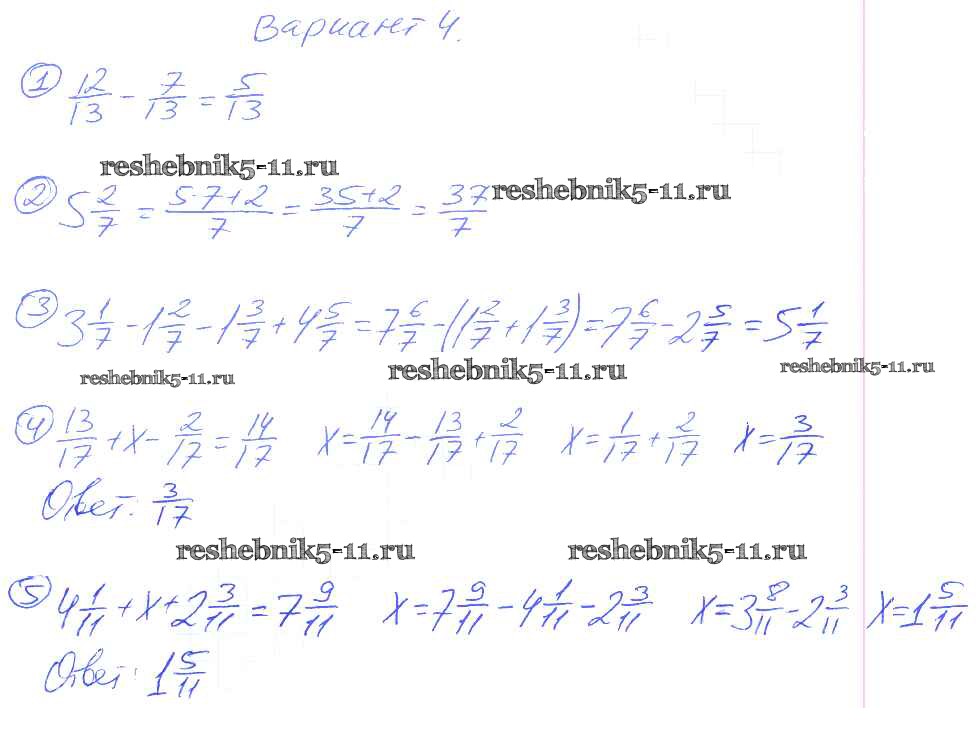 Вариант 4.
① 12/13 - 7/13 = 5/13
reshebnik5-11.ru
② 5 2/7 = (5·7+2)/7 = (35+2)/7 = 37/7
reshebnik5-11.ru
③ 3 1/7 - 1 2/7 - 1 3/7 + 4 5/7 = 7 6/7 - (1 2/7 + 1 3/7) = 7 6/7 - 2 5/7 = 5 1/7
reshebnik5-11.ru reshebnik5-11.ru reshebnik5-11.ru
④ 13/17 + x - 2/17 = 14/17 x = 14/17 - 13/17 + 2/17 x = 1/17 + 2/17 x = 3/17
Ответ: 3/17
reshebnik5-11.ru reshebnik5-11.ru
⑤ 4 1/11 + x + 2 3/11 = 7 9/11 x = 7 9/11 - 4 1/11 - 2 3/11 x = 3 8/11 - 2 3/11 x = 1 5/11
Ответ: 1 5/11